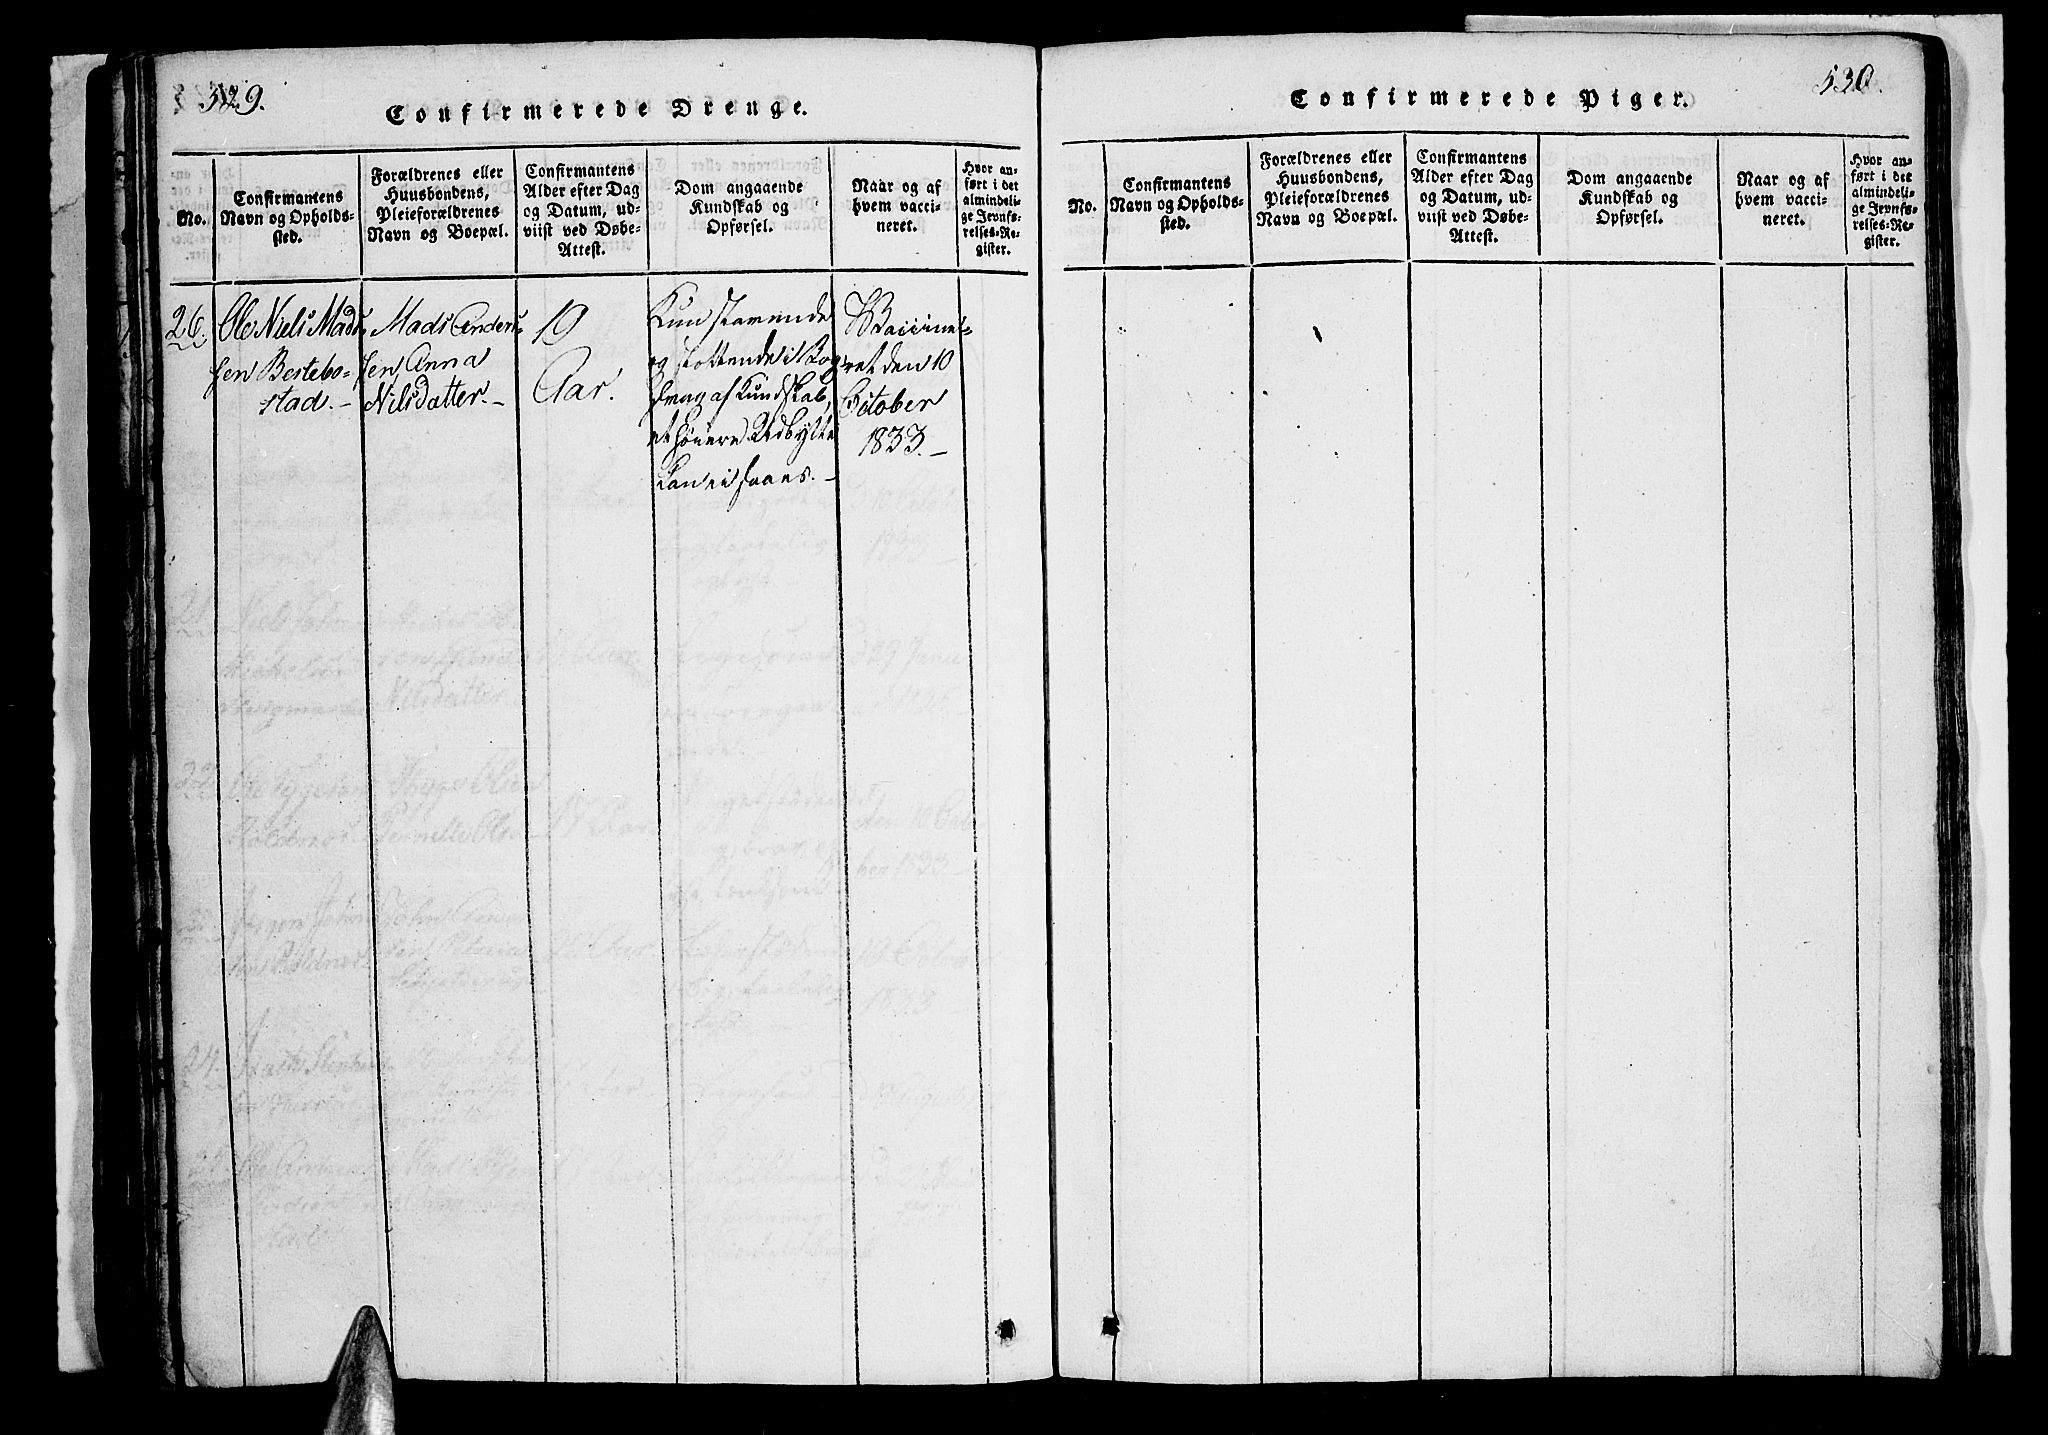 529.
Confirmerede Drenge.
No.
Confirmantens
Navn og Opholds-
sted.
Forældrenes eller
Huusbondens,
Pleieforældrenes
Navn og Boepæl.
Confirmantens
Alder efter Dag
og Datum, ud-
viist ved Døbe-
Attest.
Dom angaaende
Kundskab og
Opførsel.
Naar og af
hvem vacci-
neret.
Hvor an-
ført i det
almindeli-
ge Jevnfø-
relses-Re-
gister.
26.
Ole Niels Mad-
sen Bestebo-
stad. –
Mads Anders-
sen, Anna
Nilsdatter. –
19
Aar.
Kun stavende
og stottende i Bog
svag af Kundskab,
et høiere Udbytte
kan ei haaes. –
Waccine-
ret den 10
October
1833. –
530.
Confirmerede Piger.
No.
Confirmantens
Navn og Opholds-
sted.
Forældrenes eller
Huusbondens,
Pleieforældrenes
Navn og Boepæl.
Confirmantens
Alder efter Dag
og Datum, ud-
viist ved Døbe-
Attest.
Dom angaaende
Kundskab og
Opførsel.
Naar og af
hvem vacci-
neret.
Hvor an-
ført i det
almindeli-
ge Jevnfø-
relses-Re-
gister.